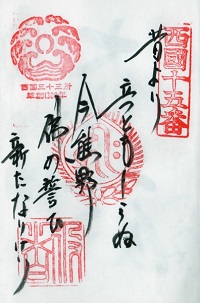 西國十五番
昔より
立つともしらぬ
今熊野
佛の誓ひ
新たなりけり
西国三十三所
草創1300年